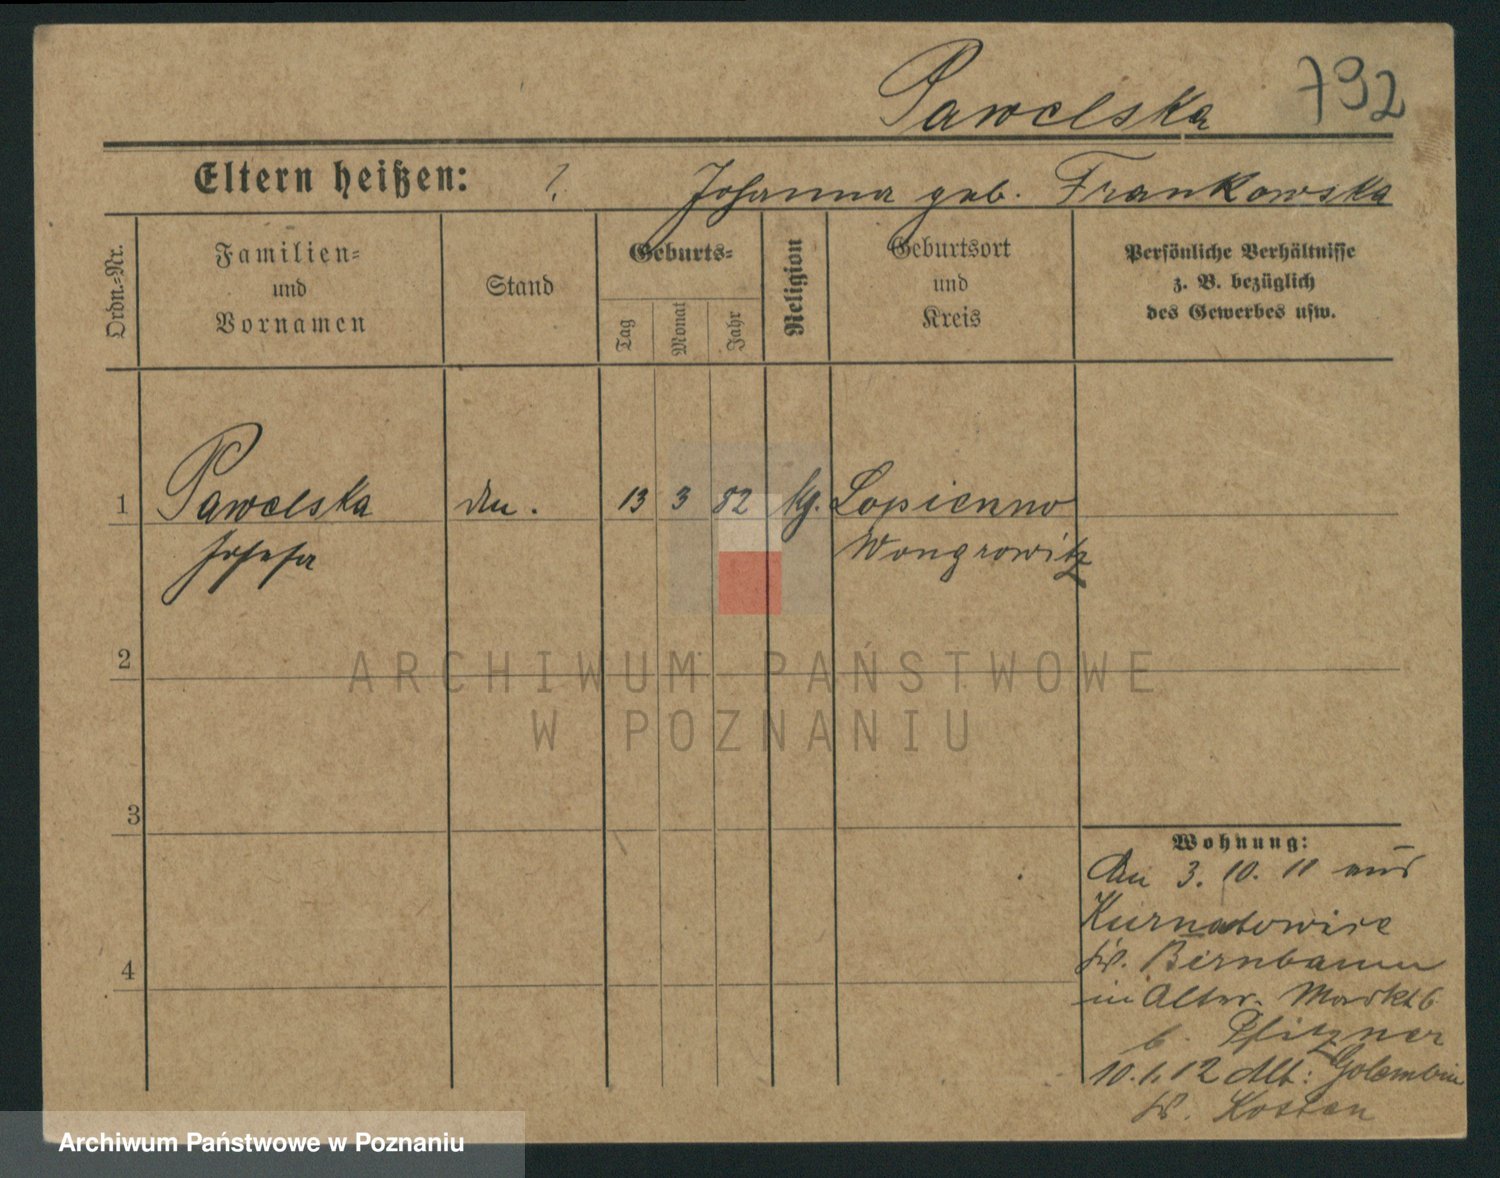 Pawelska 792
Eltern heißen: ? Johanna geb. Frankowska
Ordn.=Nr.
Familien=
und
Vornamen
Stand
Geburts=
Tag
Monat
Jahr
Religion
Geburtsort
und
Kreis
Persönliche Verhältnisse
z. B. bezüglich
des Gewerbes usw.
1 Pawelska 13 3 82 kg. Lopienno
Josefa Wongrowitz
2
3
4
Wohnung:
An 3. 10. 11 aus
Kurnatowice
Kr. Birnbaum
in Alter Markt 6
b. Pfitzner
10.1.12 Alt: Golembin
Kr. Kosten
ARCHIWUM PAŃSTWOWE
W POZNANIU
Archiwum Państwowe w Poznaniu